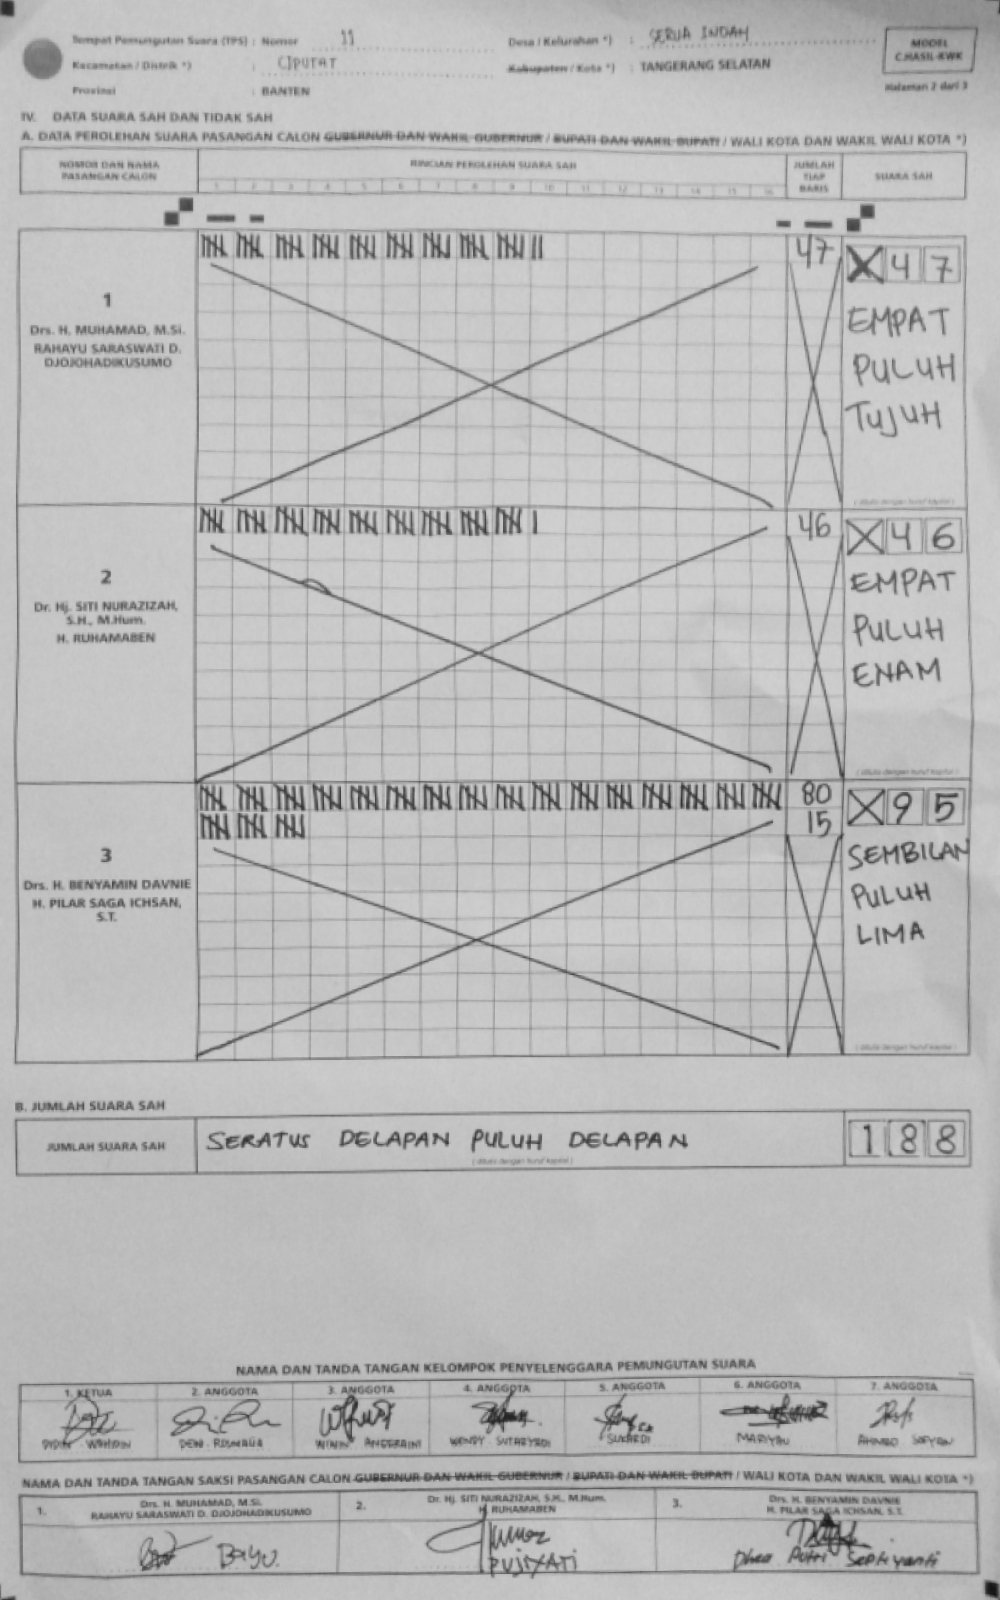 Tempat Pemungutan Suara (TPS) : Nomor 11 Desa / Kelurahan *) : SERUA INDAH
Kecamatan / Distrik *) : CIPUTAT Kabupaten / Kota *) : TANGERANG SELATAN
Provinsi : BANTEN
MODEL
C.HASIL-KWK
Halaman 2 dari 3
IV. DATA SUARA SAH DAN TIDAK SAH
A. DATA PEROLEHAN SUARA PASANGAN CALON GUBERNUR DAN WAKIL GUBERNUR / BUPATI DAN WAKIL BUPATI / WALI KOTA DAN WAKIL WALI KOTA *)
NOMOR DAN NAMA PASANGAN CALON
RINCIAN PEROLEHAN SUARA SAH
1 2 3 4 5 6 7 8 9 10 11 12 13 14 15 16
JUMLAH TIAP BARIS
SUARA SAH
1
Drs. H. MUHAMAD, M.Si.
RAHAYU SARASWATI D.
DJOJOHADIKUSUMO
47
X 4 7
EMPAT
PULUH
TUJUH
(ditulis dengan huruf kapital)
2
Dr. Hj. SITI NURAZIZAH,
S.H., M.Hum.
H. RUHAMABEN
46
X 4 6
EMPAT
PULUH
ENAM
(ditulis dengan huruf kapital)
3
Drs. H. BENYAMIN DAVNIE
H. PILAR SAGA ICHSAN,
S.T.
80
15
X 9 5
SEMBILAN
PULUH
LIMA
(ditulis dengan huruf kapital)
B. JUMLAH SUARA SAH
JUMLAH SUARA SAH SERATUS DELAPAN PULUH DELAPAN 1 8 8
(ditulis dengan huruf kapital)
NAMA DAN TANDA TANGAN KELOMPOK PENYELENGGARA PEMUNGUTAN SUARA
1. KETUA 2. ANGGOTA 3. ANGGOTA 4. ANGGOTA 5. ANGGOTA 6. ANGGOTA 7. ANGGOTA
DIDIN WAHIDIN DEWI ROSMALIA WIWIN ANGGRAINI WENDY SUKARDI MARIYAU AHMAD SOFYAN
NAMA DAN TANDA TANGAN SAKSI PASANGAN CALON GUBERNUR DAN WAKIL GUBERNUR / BUPATI DAN WAKIL BUPATI / WALI KOTA DAN WAKIL WALI KOTA *)
1. Drs. H. MUHAMAD, M.Si.
RAHAYU SARASWATI D. DJOJOHADIKUSUMO
2. Dr. Hj. SITI NURAZIZAH, S.H., M.Hum.
H. RUHAMABEN
3. Drs. H. BENYAMIN DAVNIE
H. PILAR SAGA ICHSAN, S.T.
BAYU
PUJIYATI
Dhea Putri Septiyanti